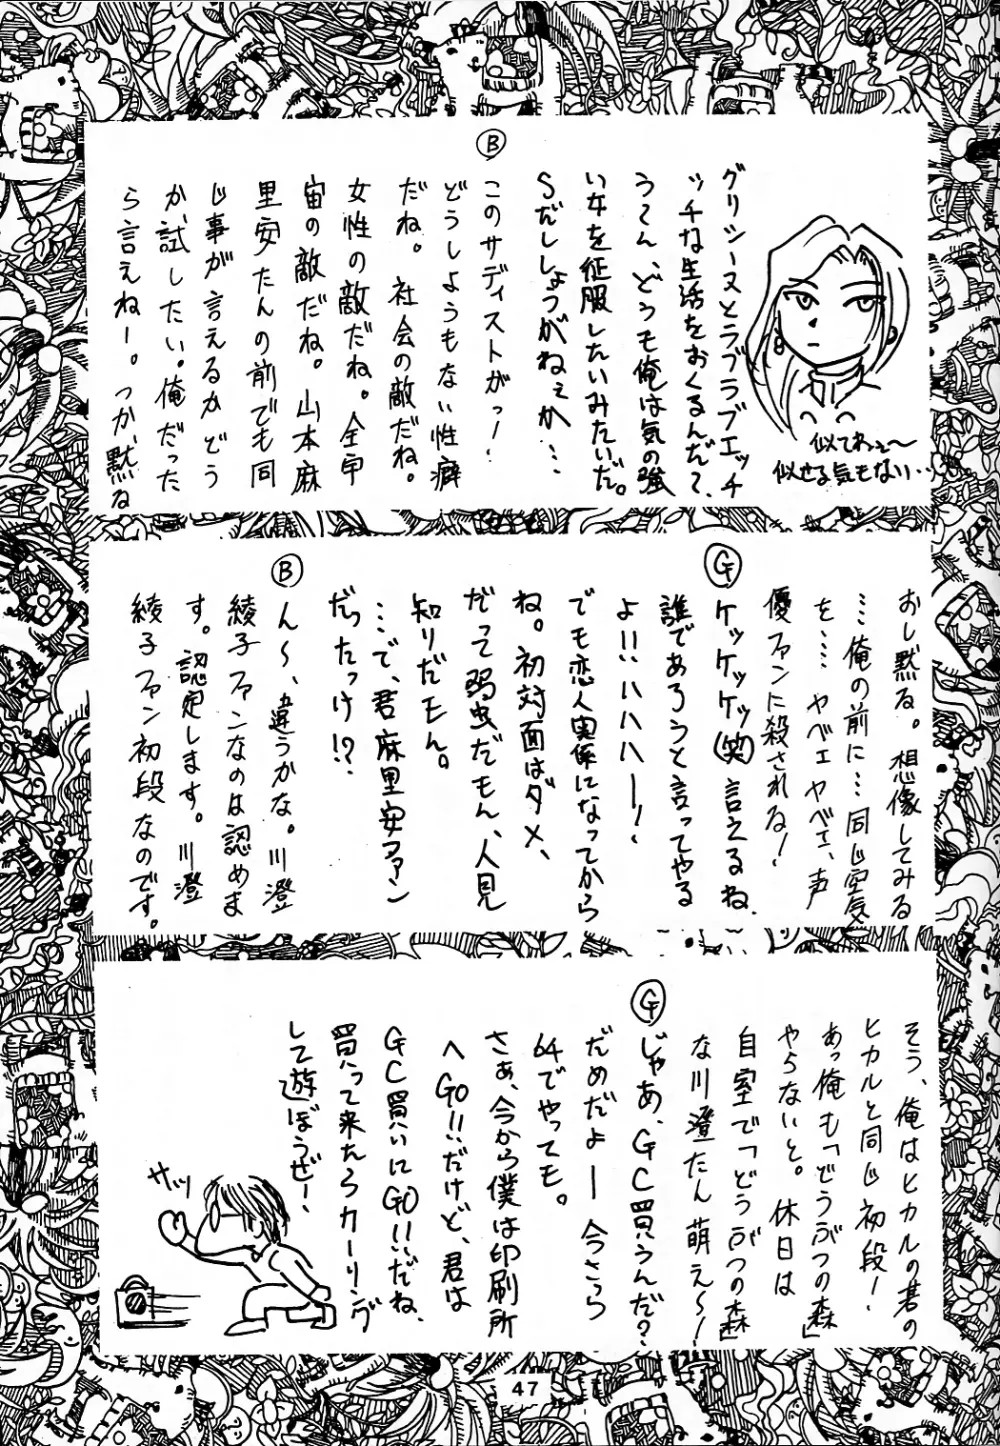 グリシーヌとラブラブエッチ
ッチな生活をおくるんだ?
うーん、どうも俺は気の強
い女を征服したいみたいだ。
Sだししょうがねぇか…
似てねぇ〜
似せる気もない…
Ⓑ
このサディストがっ!
どうしようもない性癖
だね。社会の敵だね。
女性の敵だね。全宇
宙の敵だね。山本麻
里安たんの前でも同
じ事が言えるかどう
か試したい。俺だった
ら言えねー。つか、黙る
おし黙る。想像してみる
…俺の前に…同じ空気
を……ヤベェヤベェ、声
優ファンに殺される!
Ⓖ
ケッケッケッ(笑)言えるね、
誰であろうと言ってやる
よ!!ハハハー!
でも恋人関係になってから
ね。初対面はダメ、
だって弱虫だもん、人見
知りだモん。
…で、君麻里安ファン
だったっけ!?
Ⓑ
ん〜、違うかな。川澄
綾子ファンなのは認めま
す。認定します。川澄
綾子ファン初段なのです。
そう、俺はヒカルの碁の
ヒカルと同じ初段!
あっ俺も「どうぶつの森」
やらないと。休日は
自室で「どうぶつの森」
な川澄たん萌え〜!
Ⓖ
じゃあ、GC買うんだ?
だめだよー今さら
64でやっても。
さぁ、今から僕は印刷所
へGO!!だけど、君は
GC買いにGO!!だね、
買って来たらカーリング
して遊ぼうぜー!
サッ
47